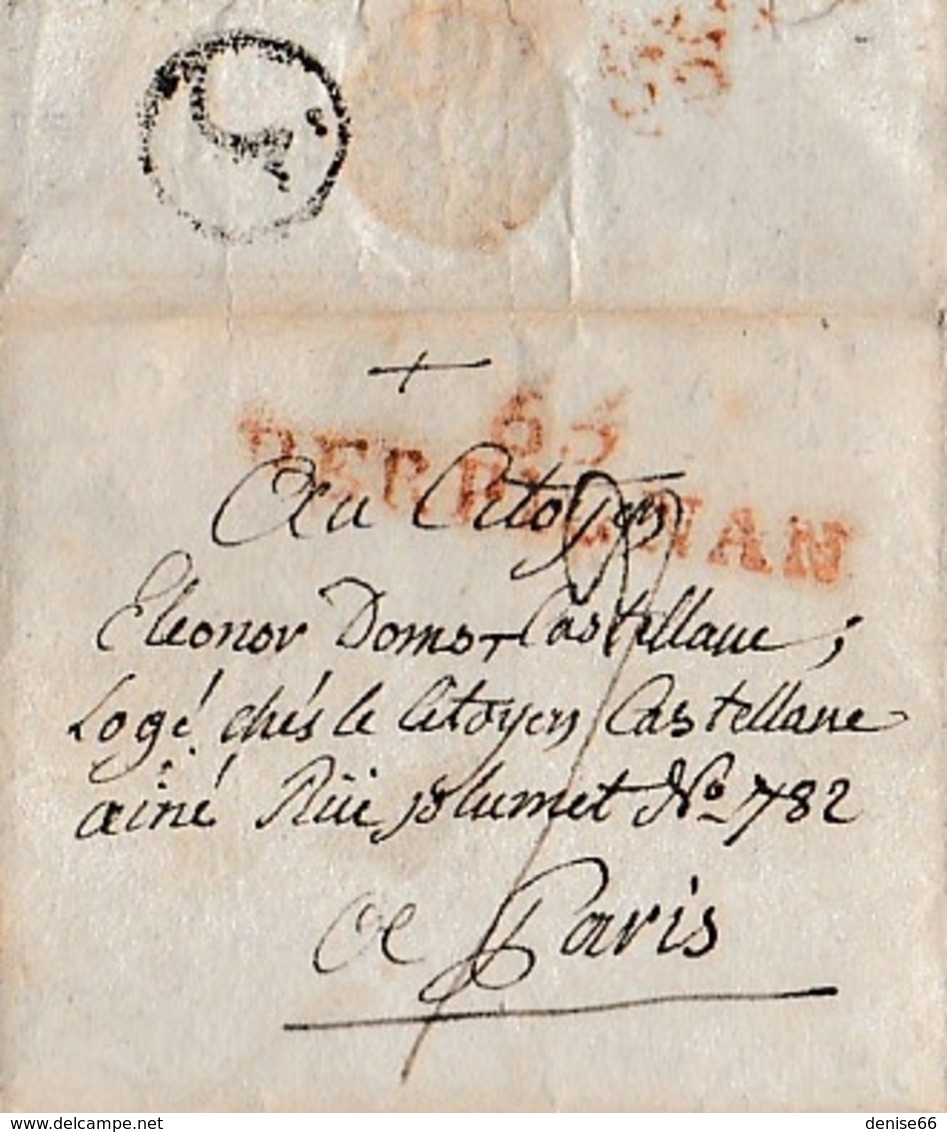 65
PERPIGNAN
Au Citoyen
Eleonor Doms-Castellane;
Logé chés le Citoyen Castellane
ainé Rüe plumet No 782
Paris
delcampe.net
denise66